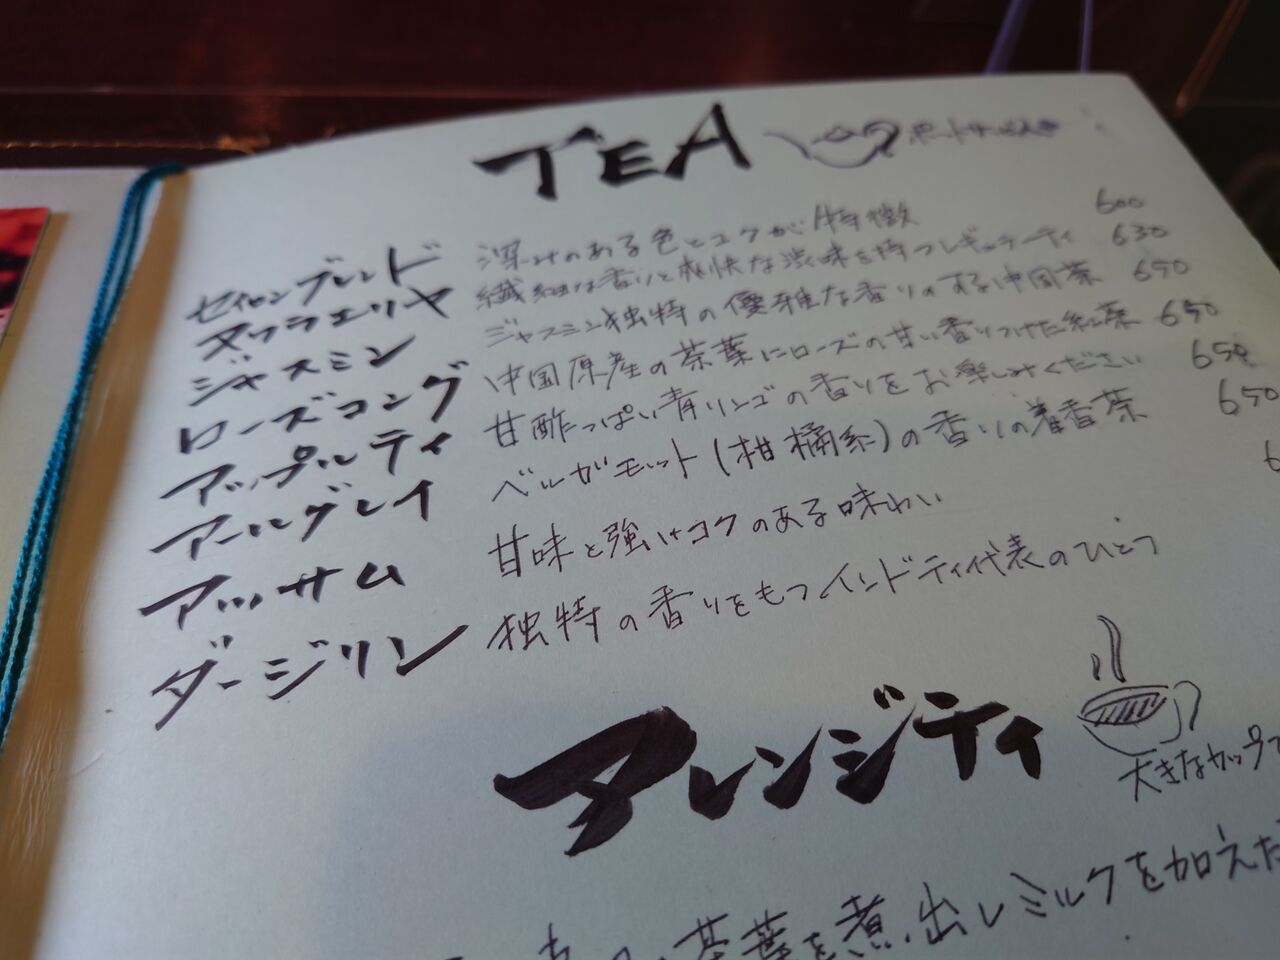 TEA ポットサービス
セイロンブレンド 深みのある色とコクが特徴 600
ヌワラエリヤ 繊細な香りと爽快な渋味を持つレギュラーティ 630
ジャスミン ジャスミン独特の優雅な香りのする中国茶 650
ローズコング 中国原産の茶葉にローズの甘い香りつけた紅茶 650
アップルティ 甘酢っぱい青リンゴの香りをお楽しみください 650
アールグレイ ベルガモット(柑橘系)の香りの着香茶 650
アッサム 甘味と強いコクのある味わい
ダージリン 独特の香りをもつインドティ代表のひとつ
アレンジティ
大きなカップで
茶葉を煮出しミルクを加えた